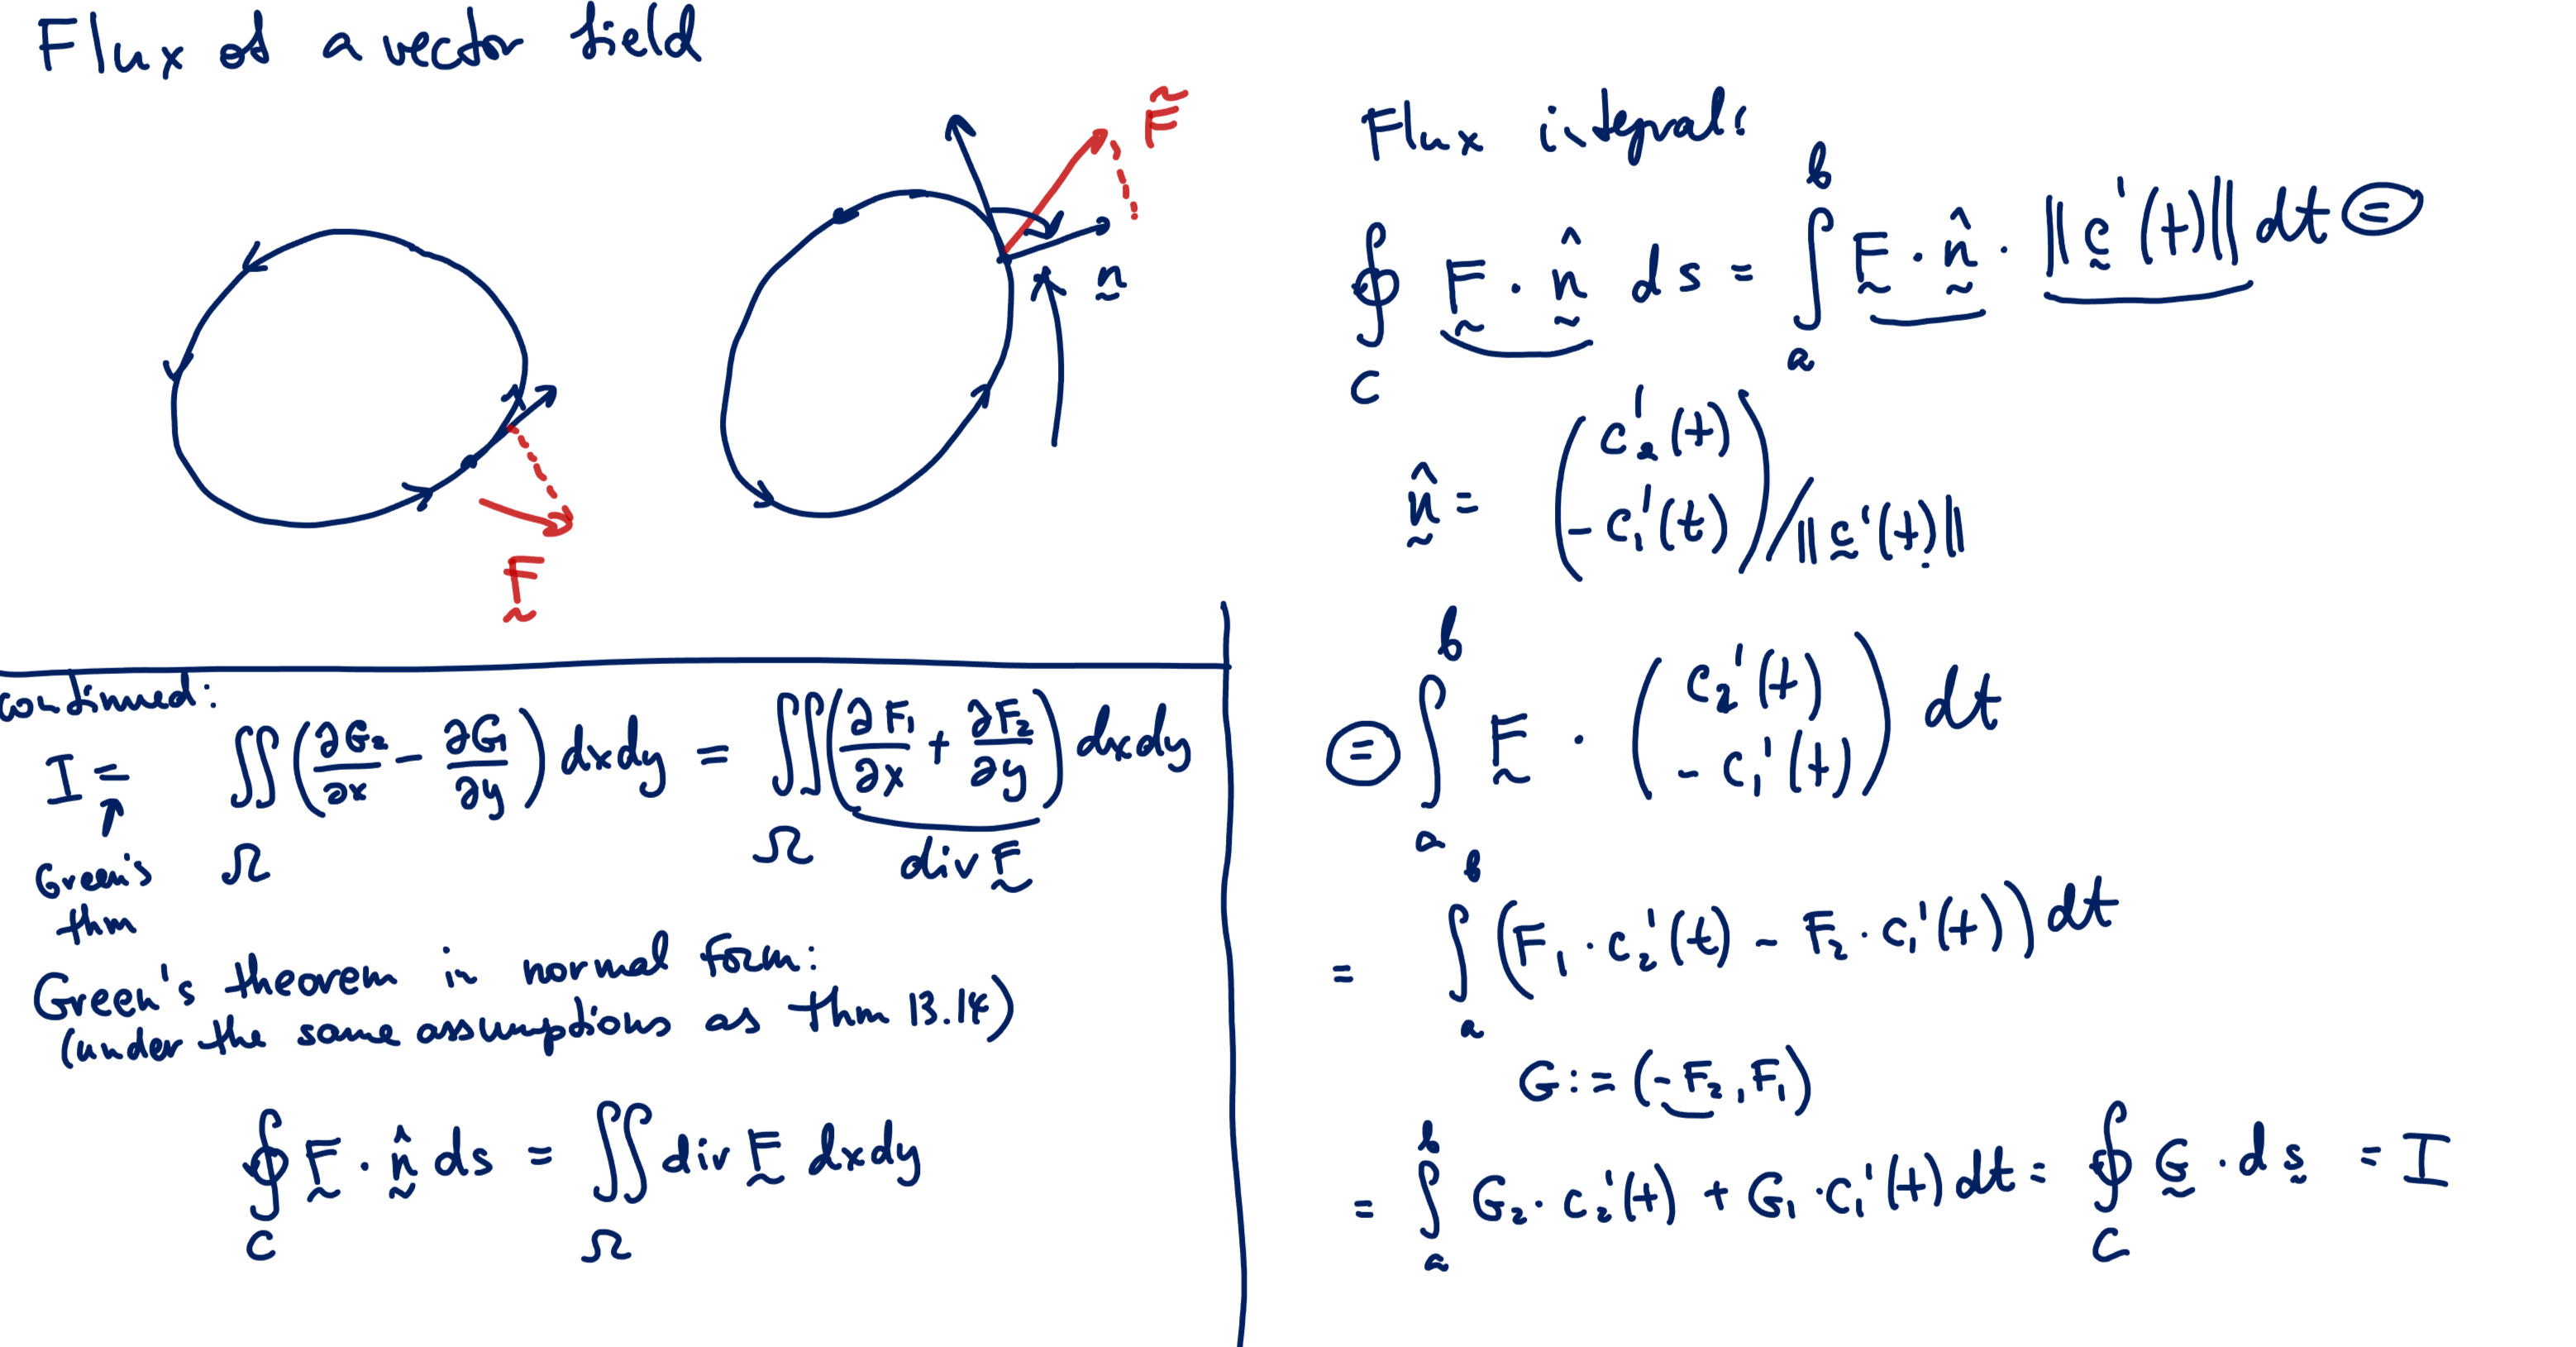 Flux of a vector field
F̰
n̰
F̰
Flux integral:
∮_C F̰ · n̰̂ ds = ∫_a^b F̰ · n̰̂ · ||c̰'(t)|| dt ⊜
n̰̂ = (c₂'(t), -c₁'(t)) / ||c̰'(t)||
⊜ ∫_a^b F̰ · (c₂'(t), -c₁'(t)) dt
= ∫_a^b (F₁ · c₂'(t) - F₂ · c₁'(t)) dt
G := (-F₂, F₁)
= ∫_a^b G₂ · c₂'(t) + G₁ · c₁'(t) dt = ∮_C G̰ · ds̰ = I
continued:
I = ∬_Ω (∂G₂/∂x - ∂G₁/∂y) dxdy = ∬_Ω (∂F₁/∂x + ∂F₂/∂y) dxdy
↑
div F̰
Green's
thm
Green's theorem in normal form:
(under the same assumptions as thm 13.14)
∮_C F̰ · n̰̂ ds = ∬_Ω div F̰ dxdy